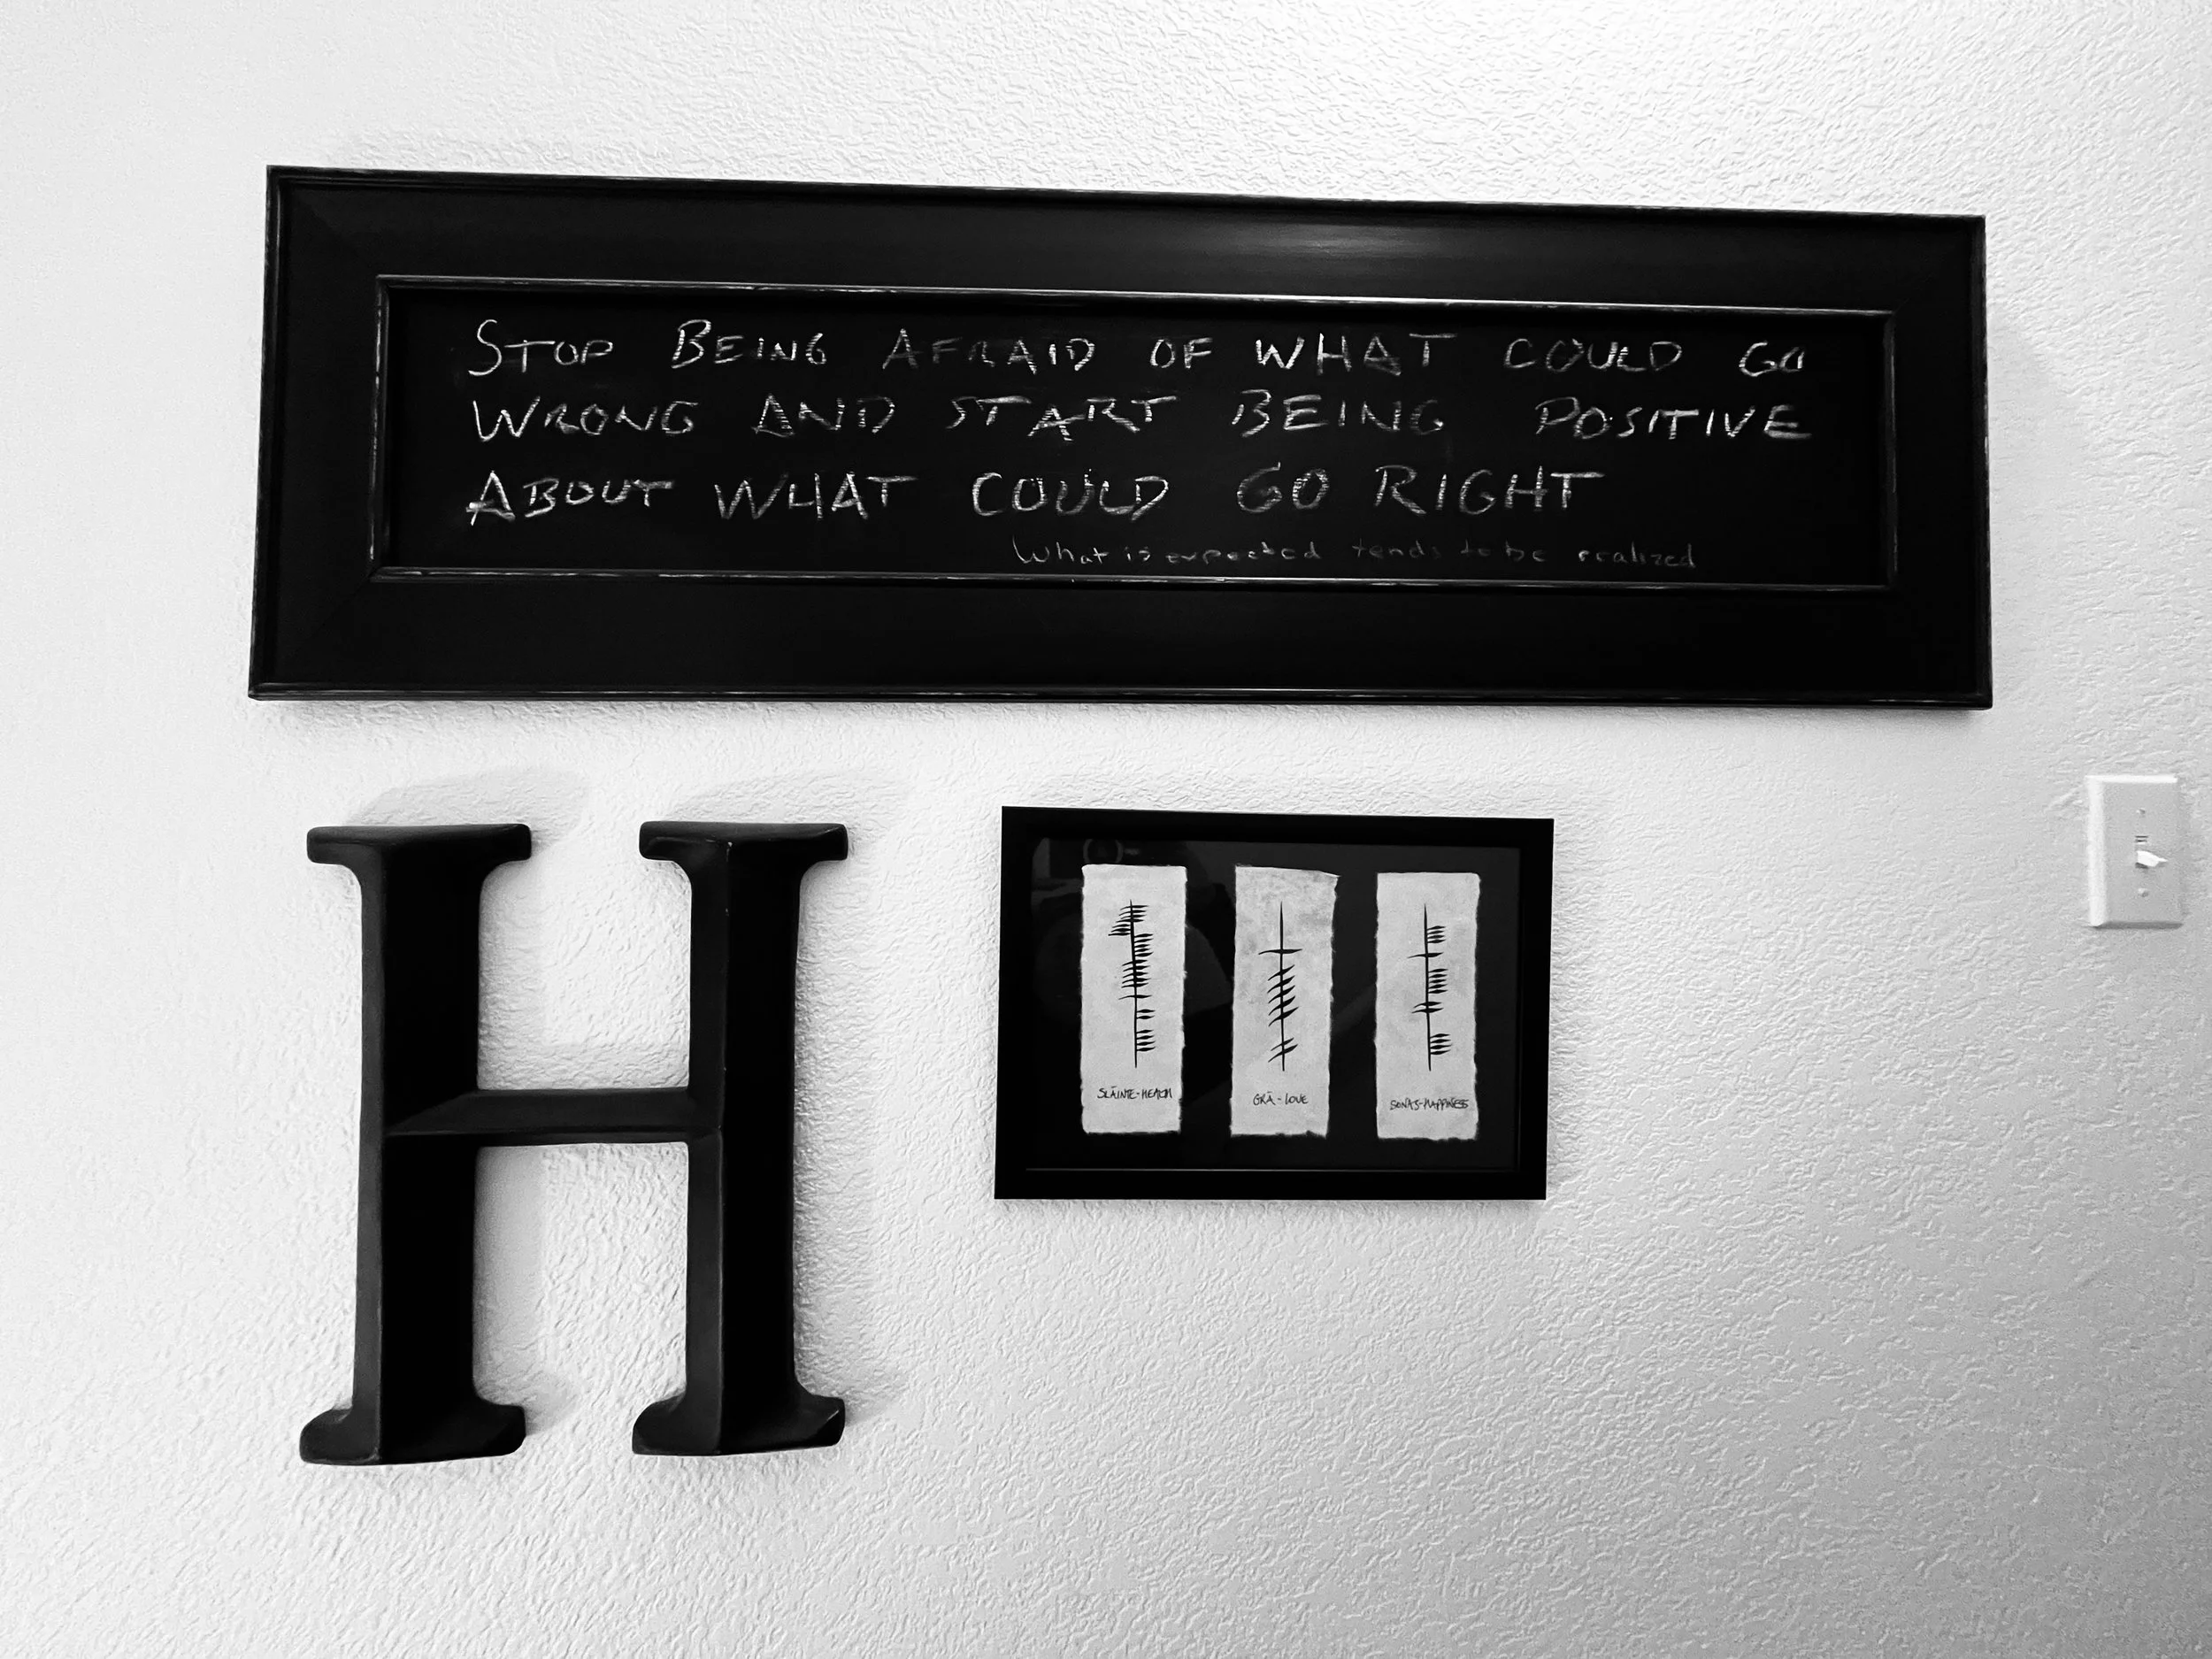 STOP BEING AFRAID OF WHAT COULD GO
WRONG AND START BEING POSITIVE
ABOUT WHAT COULD GO RIGHT
What is expected tends to be realized
H
SLÁINTE-HEALTH
GRÁ-LOVE
SONAS-HAPPINESS